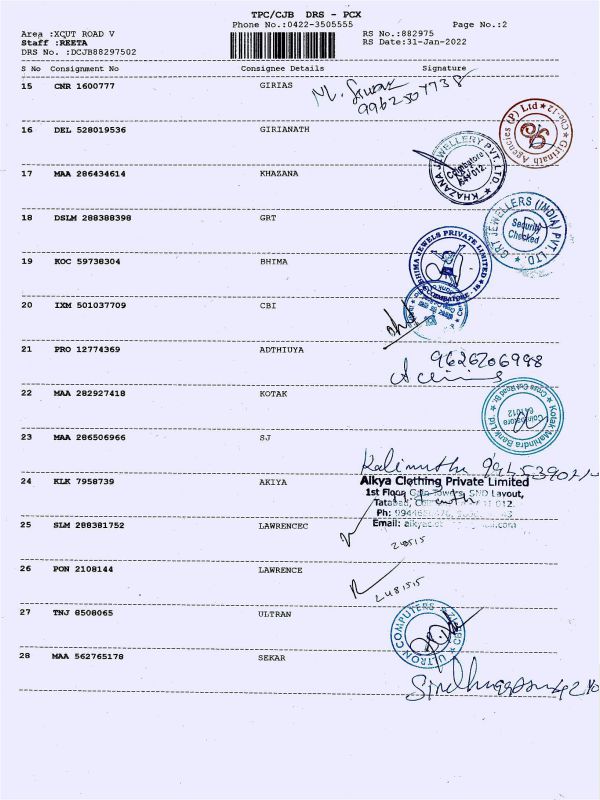 TPC/CJB DRS - PCX
Phone No.:0422-3505555 Page No.:2
Area :XCUT ROAD V RS No.:882975
Staff :REETA RS Date:31-Jan-2022
DRS No. :DCJB88297502
S No Consignment No Consignee Details Signature
15 CNR 1600777 GIRIAS
16 DEL 528019536 GIRIANATH
Girinath Agencies (P) Ltd ★ Cbe-12 ★
17 MAA 286434614 KHAZANA
KHAZANA JEWELLERY PVT. LTD.
Coimbatore
641 012.
18 DSLM 288388398 GRT
GRT JEWELLERS (INDIA) PVT. LTD.
Security
Checked
19 KOC 59738304 BHIMA
BHIMA JEWELS PRIVATE LIMITED
COIMBATORE
20 IXM 501037709 CBI
21 PRO 12774369 ADTHIUYA
9626206988
22 MAA 282927418 KOTAK
Kotak Mahindra Bank Ltd.
Coimbatore
641012
23 MAA 286506966 SJ
Kalimuthu
24 KLK 7958739 AKIYA
Aikya Clothing Private Limited
1st Floor SND Layout,
Tatabad,
Ph:
Email:
25 SLM 288381752 LAWRENCEC
26 PON 2108144 LAWRENCE
27 TNJ 8508065 ULTRAN
ULTRON COMPUTERS
28 MAA 562765178 SEKAR